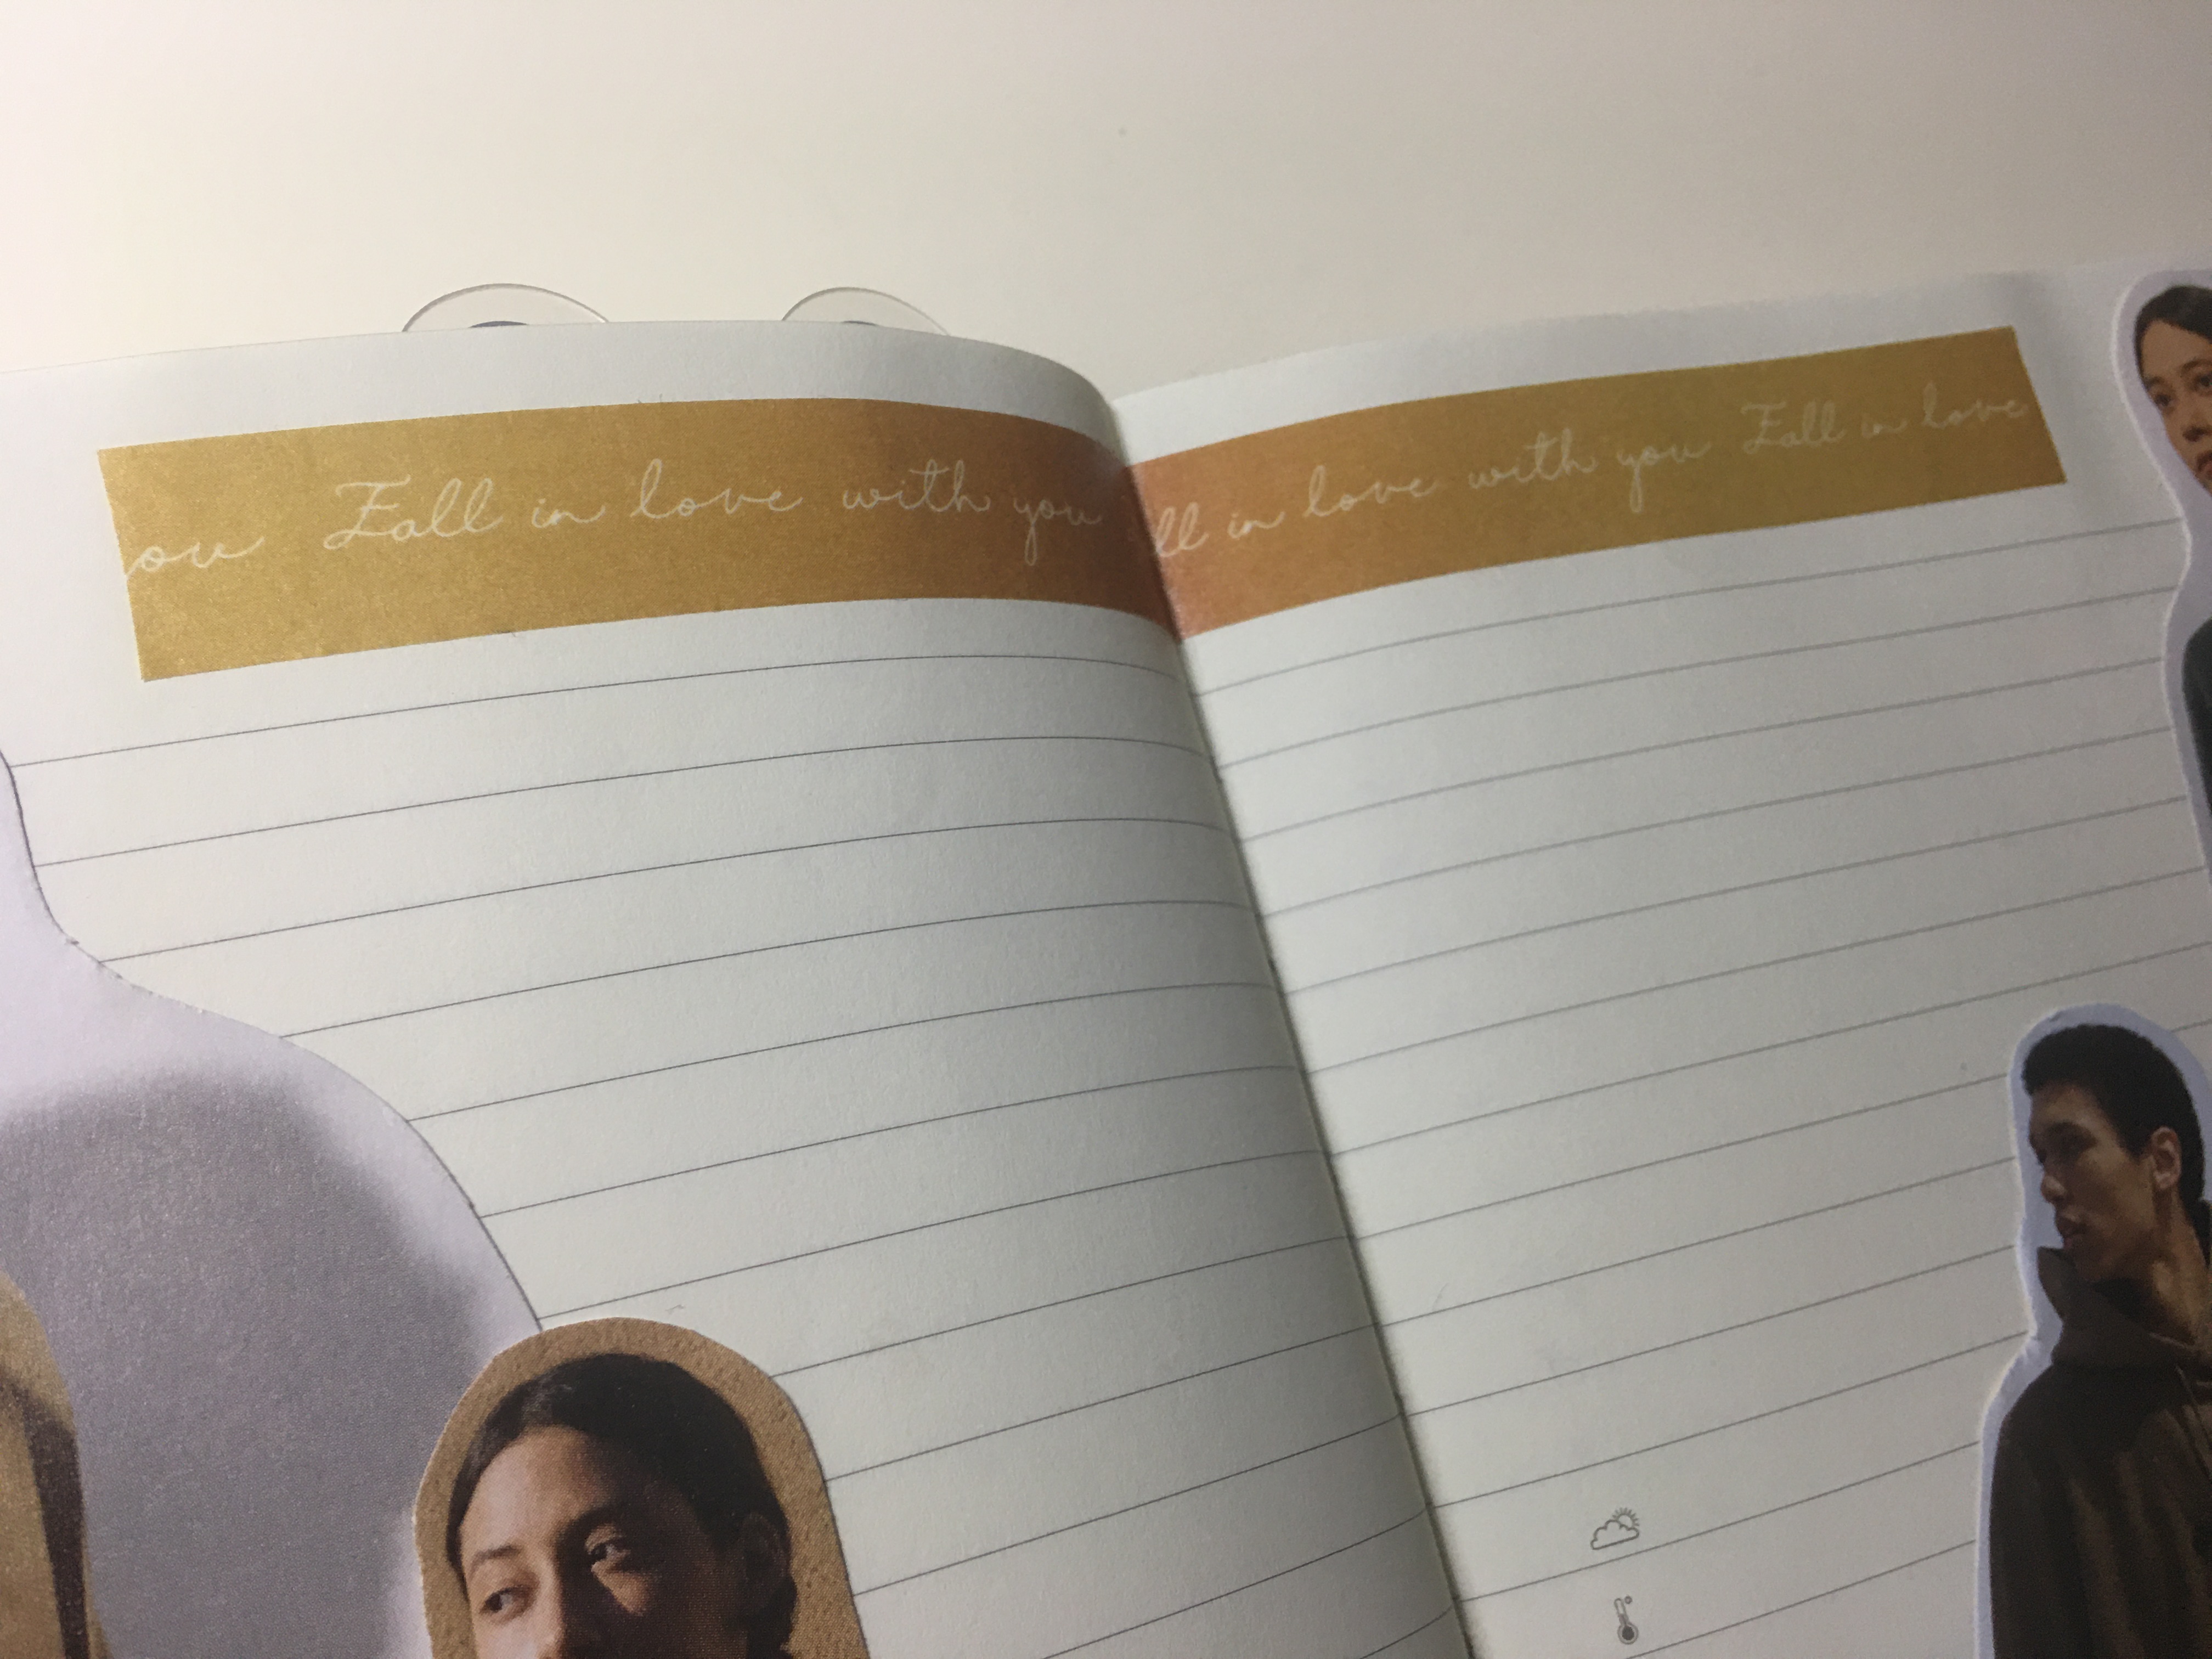 ou Fall in love with you
ll in love with you Fall in love